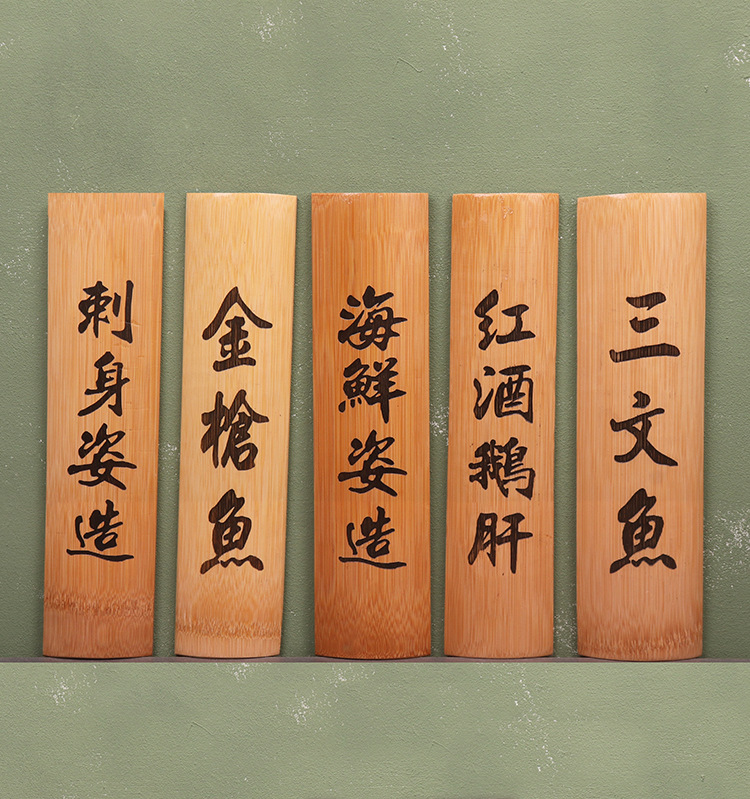 刺身姿造
金槍魚
海鮮姿造
红酒鵝肝
三文魚